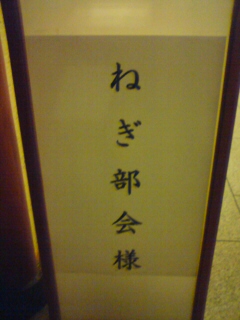 ねぎ部会様